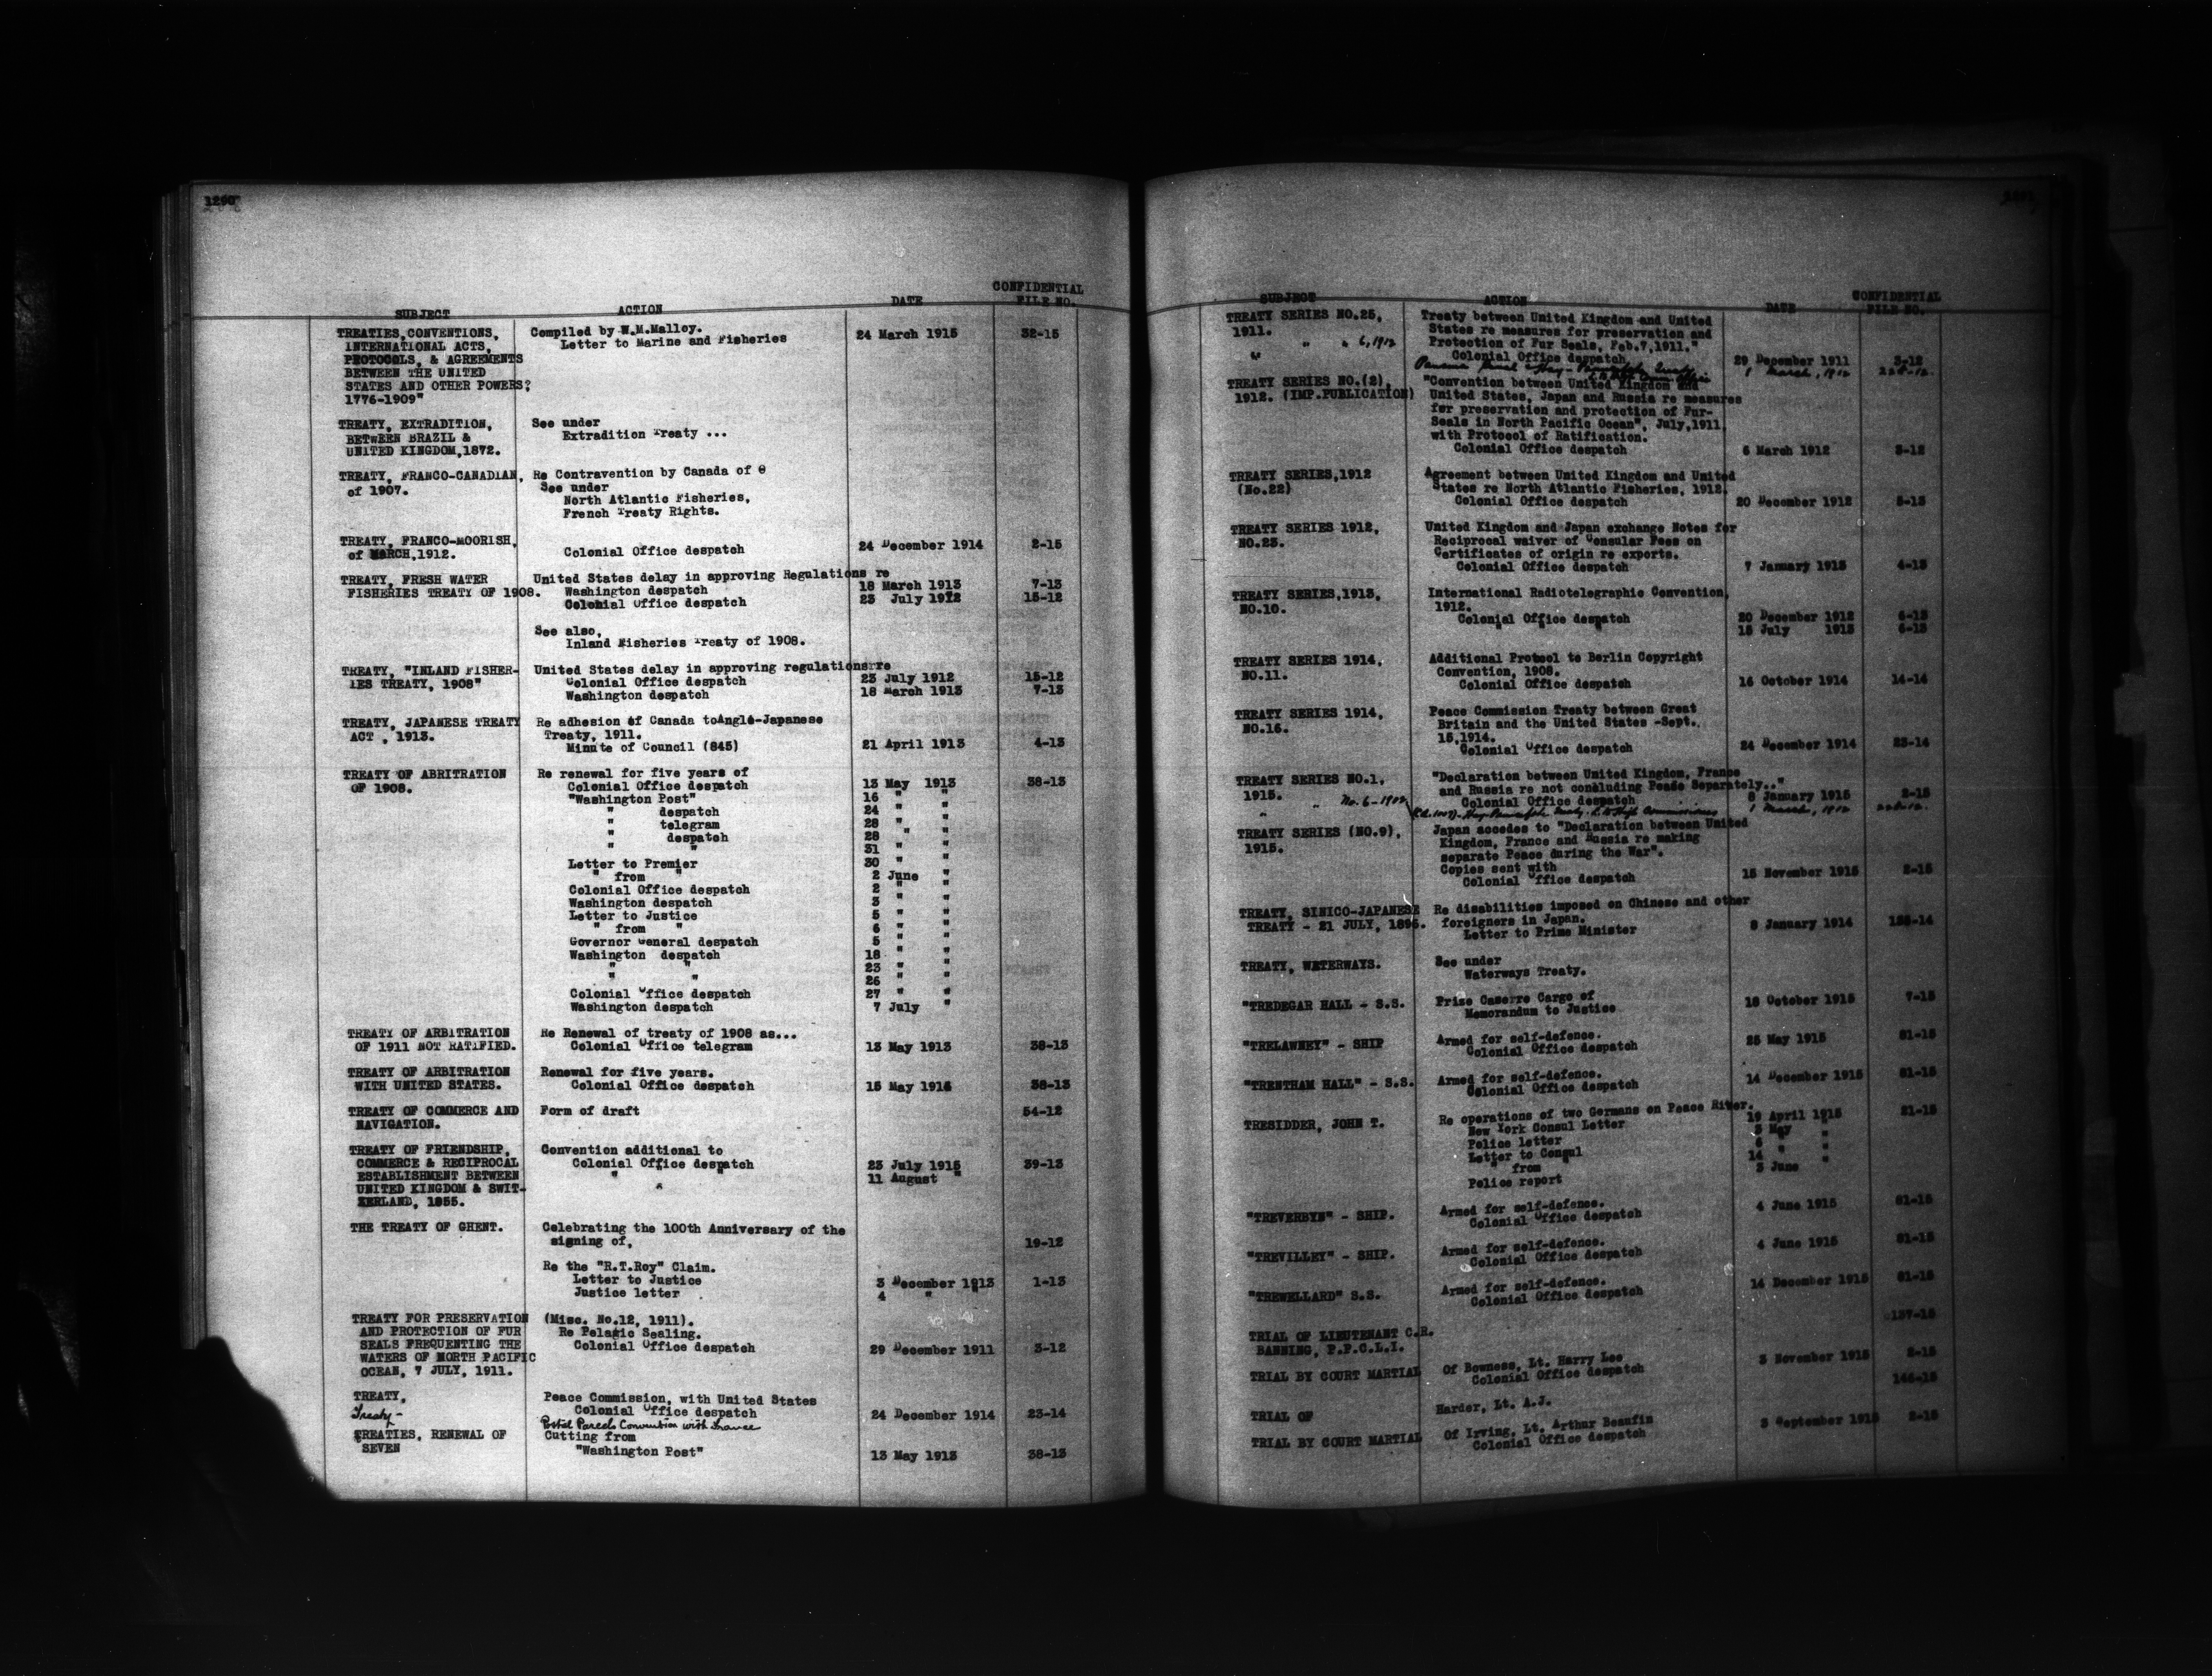 1260
SUBJECT ACTION DATE CONFIDENTIAL FILE NO.
TREATIES, CONVENTIONS, Compiled by W.M.Malloy. 24 March 1915 32-15
INTERNATIONAL ACTS, Letter to Marine and Fisheries
PROTOCOLS, & AGREEMENTS
BETWEEN THE UNITED
STATES AND OTHER POWERS?
1776-1909"
TREATY, EXTRADITION, See under
BETWEEN BRAZIL & Extradition Treaty ...
UNITED KINGDOM,1872.
TREATY, FRANCO-CANADIAN, Re Contravention by Canada of θ
of 1907. See under
North Atlantic Fisheries,
French Treaty Rights.
TREATY, FRANCO-MOORISH, 24 December 1914 2-15
of MARCH,1912. Colonial Office despatch
TREATY, FRESH WATER United States delay in approving Regulations re
FISHERIES TREATY OF 1908. Washington despatch 18 March 1913 7-13
Colonial Office despatch 23 July 1912 15-12
See also,
Inland Fisheries Treaty of 1908.
TREATY, "INLAND FISHER- United States delay in approving regulations re
IES TREATY, 1908" Colonial Office despatch 23 July 1912 15-12
Washington despatch 18 March 1913 7-13
TREATY, JAPANESE TREATY Re adhesion of Canada toAnglo-Japanese
ACT , 1913. Treaty, 1911.
Minute of Council (845) 21 April 1913 4-13
TREATY OF ABRITRATION Re renewal for five years of
OF 1908. Colonial Office despatch 13 May 1913 38-13
"Washington Post" 16 " "
" despatch 24 " "
" telegram 28 " "
" despatch 28 " "
" " 31 " "
Letter to Premier 30 " "
" from " 2 June "
Colonial Office despatch 2 " "
Washington despatch 3 " "
Letter to Justice 5 " "
" from " 6 " "
Governor General despatch 5 " "
Washington despatch 18 " "
" " 23 " "
" " 26 " "
Colonial Office despatch 27 " "
Washington despatch 7 July "
TREATY OF ARBITRATION Re Renewal of treaty of 1908 as...
OF 1911 NOT RATIFIED. Colonial Office telegram 13 May 1913 38-13
TREATY OF ARBITRATION Renewal for five years.
WITH UNITED STATES. Colonial Office despatch 15 May 1914 38-13
TREATY OF COMMERCE AND Form of draft 54-12
NAVIGATION.
TREATY OF FRIENDSHIP, Convention additional to
COMMERCE & RECIPROCAL Colonial Office despatch 23 July 1915 39-13
ESTABLISHMENT BETWEEN " " " 11 August "
UNITED KINGDOM & SWIT-
ZERLAND, 1855.
THE TREATY OF GHENT. Celebrating the 100th Anniversary of the
signing of, 19-12
Re the "R.T.Roy" Claim.
Letter to Justice 3 December 1913 1-13
Justice letter 4 " "
TREATY FOR PRESERVATION (Misc. No.12, 1911).
AND PROTECTION OF FUR Re Pelagic Sealing.
SEALS FREQUENTING THE Colonial Office despatch 29 December 1911 3-12
WATERS OF NORTH PACIFIC
OCEAN, 7 JULY, 1911.
TREATY, Peace Commission, with United States
Colonial Office despatch 24 December 1914 23-14
Treaty- Postal Parcels Convention with France
TREATIES, RENEWAL OF Cutting from
SEVEN "Washington Post" 13 May 1913 38-13
SUBJECT ACTION DATE CONFIDENTIAL FILE NO.
TREATY SERIES NO.25, Treaty between United Kingdom and United
1911. States re measures for preservation and
Protection of Fur Seals, Feb.7,1911."
Colonial Office despatch 29 December 1911 3-12
" " " 6, 1912 Panama Canal Hay-Pauncefote treaty 1 March, 1912
TREATY SERIES NO.(2), "Convention between United Kingdom and
1912. (IMP.PUBLICATION) United States, Japan and Russia re measures
for preservation and protection of Fur-
Seals in North Pacific Ocean", July,1911,
with Protocol of Ratification.
Colonial Office despatch 6 March 1912 3-12
TREATY SERIES,1912 Agreement between United Kingdom and United
(No.22) States re North Atlantic Fisheries, 1912.
Colonial Office despatch 20 December 1912 5-13
TREATY SERIES 1912, United Kingdom and Japan exchange Notes for
NO.23. Reciprocal waiver of Consular Fees on
Certificates of origin re exports.
Colonial Office despatch 7 January 1913 4-13
TREATY SERIES,1913, International Radiotelegraphic Convention,
NO.10. 1912.
Colonial Office despatch 20 December 1912 6-13
" " " 15 July 1913 6-13
TREATY SERIES 1914, Additional Protocol to Berlin Copyright
NO.11. Convention, 1908.
Colonial Office despatch 16 October 1914 14-14
TREATY SERIES 1914, Peace Commission Treaty between Great
NO.16. Britain and the United States -Sept.
15,1914.
Colonial Office despatch 24 December 1914 23-14
TREATY SERIES NO.1, "Declaration between United Kingdom, France
1915. and Russia re not concluding Peace Separately.."
Colonial Office despatch 8 January 1915 2-15
" " No.6-1912 Hay-Pauncefote treaty 1 March, 1912
TREATY SERIES (NO.9), Japan accedes to "Declaration between United
1915. Kingdom, France and Russia re making
separate Peace during the War".
Copies sent with
Colonial Office despatch 15 November 1915 2-15
TREATY, SINICO-JAPANESE Re disabilities imposed on Chinese and other
TREATY - 21 JULY, 1896. foreigners in Japan.
Letter to Prime Minister 8 January 1914
TREATY, WATERWAYS. See under
Waterways Treaty.
"TREDEGAR HALL - S.S. Prize Caserre Cargo of 18 October 1915 7-15
Memorandum to Justice
"TRELAWNEY" - SHIP Armed for self-defence.
Colonial Office despatch 25 May 1915 81-15
"TRENTHAM HALL" - S.S. Armed for self-defence.
Colonial Office despatch 14 December 1915 81-15
TRESIDDER, JOHN T. Re operations of two Germans on Peace River.
New York Consul Letter 19 April 1915 21-15
Police letter 3 May "
Letter to Consul 6 " "
" from " 14 " "
Police report 3 June "
"TREVERBYN" - SHIP. Armed for self-defence.
Colonial Office despatch 4 June 1915 81-15
"TREVILLEY" - SHIP. Armed for self-defence.
Colonial Office despatch 4 June 1915 81-15
"TREWELLARD" S.S. Armed for self-defence.
Colonial Office despatch 14 December 1915 81-15
TRIAL OF LIEUTENANT C.R. 137-15
BANNING, P.P.C.L.I.
TRIAL BY COURT MARTIAL Of Bowness, Lt. Harry Lee
Colonial Office despatch 3 November 1915 2-15
TRIAL OF Harder, Lt. A.J. 146-15
TRIAL BY COURT MARTIAL Of Irving, Lt. Arthur Beaufin
Colonial Office despatch 3 September 1915 2-15